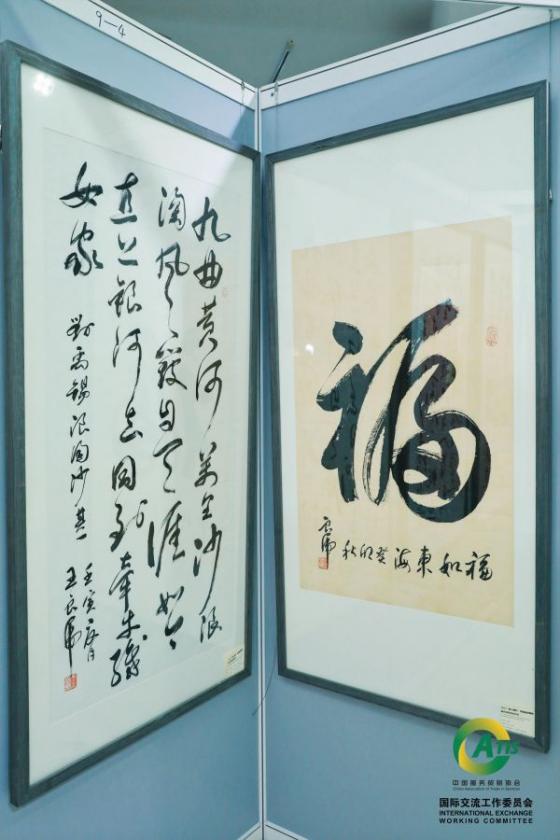 9-4
九曲黄河萬里沙浪
淘風簸自天涯如今
直上銀河去同到牽牛織
女家
劉禹錫浪淘沙其一
壬寅
王良虎
福
福如東海 癸卯秋
良虎
CATIS
中国服务贸易协会
China Association of Trade in Services
国际交流工作委员会
INTERNATIONAL EXCHANGE
WORKING COMMITTEE